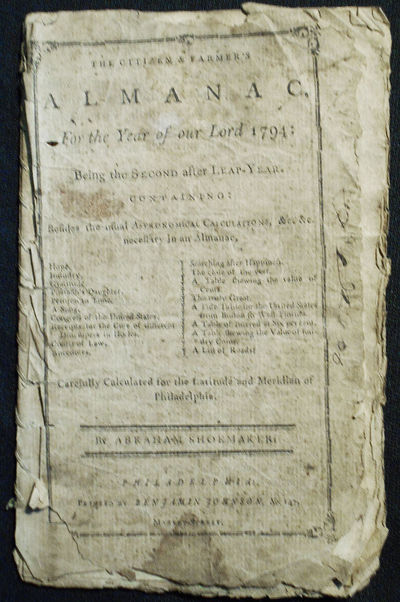 THE CITIZEN & FARMER'S
ALMANAC,
For the Year of our Lord 1794:
Being the SECOND after LEAP-YEAR.
CONTAINING:
Besides the usual ASTRONOMICAL CALCULATIONS, &c. &c.
necessary in an Almanac,
Hope,
Industry,
Petition to Time,
A Song,
Congress of the United States,
Receipts for the Cure of different
Distempers in Horses,
Courts of Law,
Anecdotes,
Searching after Happiness,
The close of the Year,
A Table shewing the value of
Cents
A Tide Table for the United States
from Boston to West Florida
A Table of Interest at Six per cent.
A Table shewing the Value of
Coins
A List of Roads
Carefully Calculated for the Latitude and Meridian of
Philadelphia.
By ABRAHAM SHOEMAKER.
PHILADELPHIA,
PRINTED BY BENJAMIN JOHNSON, No. 147,
MARKET-STREET.